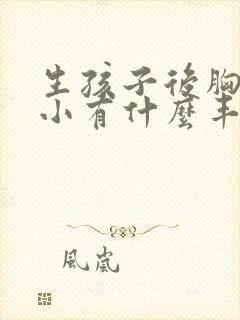 生孩子後胸
小有什麼丰
風嵐